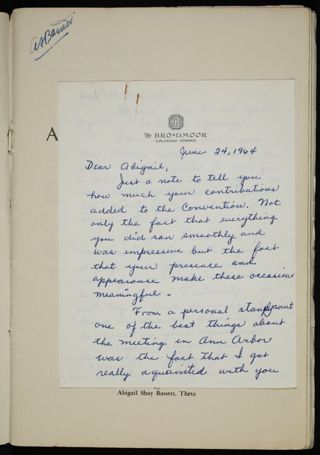 ASBassett
A
The BROADMOOR
COLORADO SPRINGS
June 24, 1964
Dear Abigail,
Just a note to tell you
how much your contributions
added to the Convention. Not
only the fact that everything
you did ran smoothly and
was impressive but the fact
that your presence and
appearance make these occasions
meaningful.
From a personal standpoint
one of the best things about
the meeting in Ann Arbor
was the fact that I got
really aquainted with you
Abigail Shay Bassett, Theta